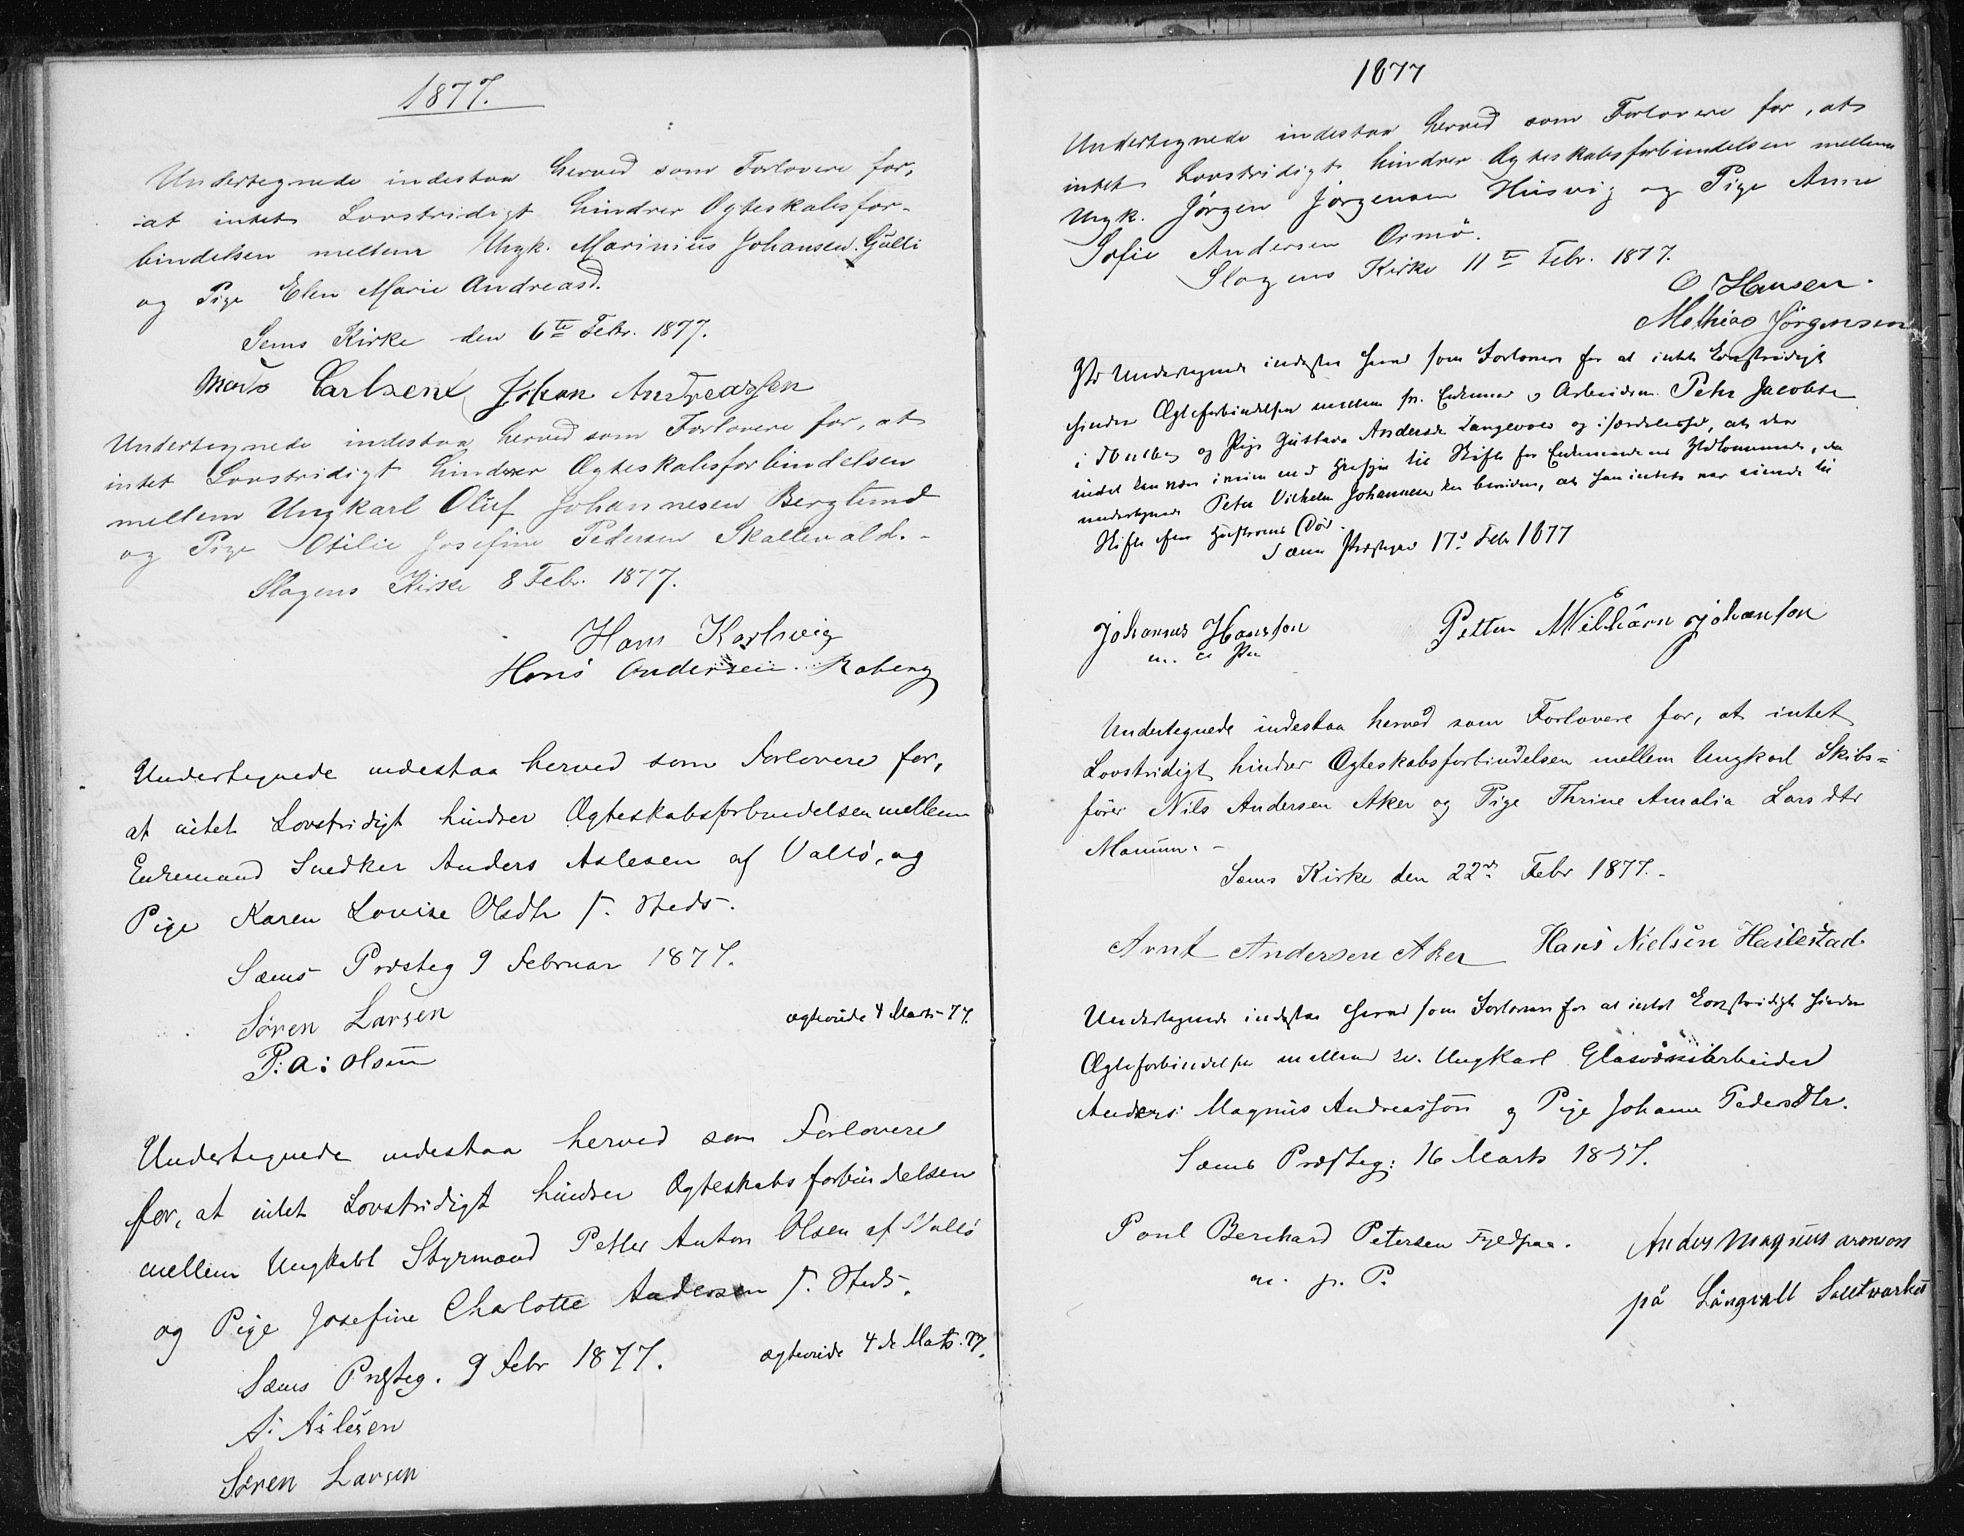 1877.
Undertegnede indestaa herved som Forlovere for,
at intet Lovstridigt hindrer Ægteskabsfor-
bindelsen mellem Ungk. Marinius Johansen Gulli
og Pige Elen Marie Andreasd.
Sems Kirke den 6te Febr. 1877.
Mads Carlsen Johan Andreassen
Undertegnede indestaa herved som Forlovere for, at
intet Lovstridigt hindrer Ægteskabsforbindelsen
mellem Ungkarl Oluf Johannesen Berglund
og Pige Otilie Josefine Pedersen Skallevald.-
Slagens Kirke 8 Febr. 1877.
Hans Karlsvig
Hans Andersen Roberg
Undertegnede indestaa herved som Forlovere for,
at intet Lovstridigt hindrer Ægteskabsforbindelsen mellem
Enkemand Snedker Anders Aslesen af Vallö, og
Pige Karen Lovise Olsdtr f. Steds.
Sems Præsteg 9 Februar 1877.
Sören Larsen
ægteviede 4 Marts 77.
P: A: Olsen
Undertegnede indestaa herved som Forlovere
for, at intet Lovstridigt hindrer Ægteskabsforbindelsen
mellem Ungkarl Styrmand Petter Anton Olsen af Vallö
og Pige Josefine Charlotte Andersen f. Steds.
Sæms Præsteg. 9 Febr 1877.
ægteviede 4de Marts 77.
A: Aslesen
Sören Larsen
1877
Undertegnede indestaa herved som Forlovere for, at
intet Lovstridigt hindrer Ægteskabsforbindelsen mellem
Ungk. Jörgen Jörgensen Husvig og Pige Anne
Sofie Andersen Ormö.
Slagens Kirke 11te Febr. 1877.
O Hansen.
Mathias Jörgensen
Undertegnede indestaa herved som Forlovere for at intet Lovstridigt
hindrer Ægteforbindelsen mellem Enkemand Arbeider Peter Jacobsen
og Pige Gustava Andersd. og især derfor, at der
intet kan være i veien med Hensyn til Skifte for Enkemandens Vedkommende, da
undertegnede Peter Vilhelm Johannesen kan bevidne, at han intet var eiende til
Skifte efter Hustruens Död.
Sæms Præstegd 17de Feb 1877
Johannes Hansson Petter Wilhelm Johanson
m. p. Pen
Undertegnede indestaa herved som Forlovere for, at intet
Lovstridigt hindrer Ægteskabsforbindelsen mellem Ungkarl Skibs-
förer Nils Andersen Aker og Pige Thrine Amalia Larsdtr
Manum.-
Sæms Kirke den 22de Febr 1877.-
Arnt Andersen Aker Hans Nielsen Haslestad
Undertegnede indestaa herved som Forlovere for at intet Lovstridigt hindrer
Ægteforbindelsen mellem Ungkarl Glasværksarbeider
Anders Magnus Andreasson og Pige Johanne Pedersdtr.
Sæms Præsteg: 16 Marts 1877.
Poul Bernhard Petersen Anders Magnus aronson
m. p. P.
på Långvall Saltvarket